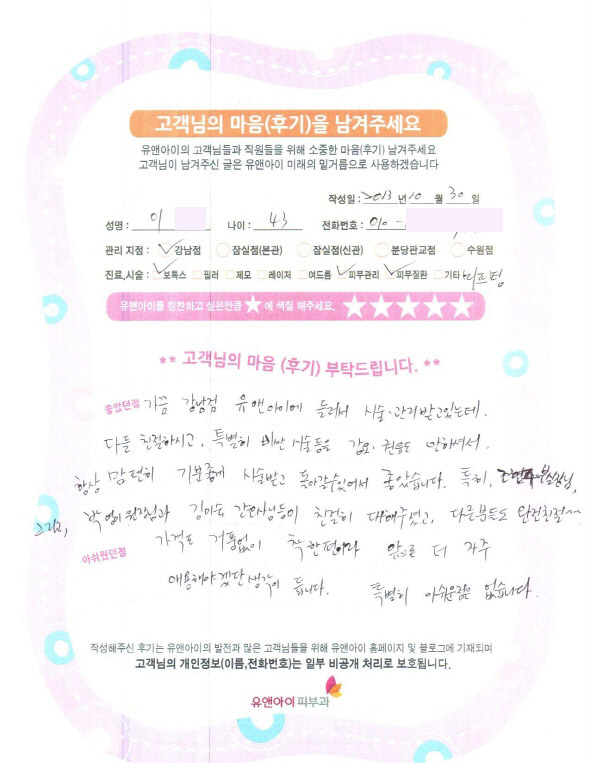 고객님의 마음(후기)을 남겨주세요
유앤아이의 고객님들과 직원들을 위해 소중한 마음(후기) 남겨주세요
고객님이 남겨주신 글은 유앤아이 미래의 밑거름으로 사용하겠습니다
작성일 : 2013 년 10 월 30 일
성명 : 이 나이 : 43 전화번호 : 010 -
관리 지점 : 강남점 잠실점(본관) 잠실점(신관) 분당판교점 수원점
진료,시술 : 보톡스 필러 제모 레이저 여드름 피부관리 피부질환 기타 리프팅
유앤아이를 칭찬하고 싶은만큼 ★ 에 색칠 해주세요. ★★★★★
** 고객님의 마음 (후기) 부탁드립니다. **
좋았던점 가끔 강남점 유앤아이에 들러서 시술·관리받고있는데.
다들 친절하시고, 특별히 비싼 시술등을 강요, 권유도 안하셔서.
항상 맘편히 기분좋게 시술받고 돌아갈수있어서 좋았습니다. 특히,
그리고, 박 원장님과 간호사님등이 친절히 대해주셨고, 다른분들도 완전친절~~
아쉬웠던점 가격도 거품없이 착한편이라 앞으로 더 자주
애용해야겠단 생각이 듭니다. 특별히 아쉬운점은 없습니다.
작성해주신 후기는 유앤아이의 발전과 많은 고객님들을 위해 유앤아이 홈페이지 및 블로그에 기재되며
고객님의 개인정보(이름,전화번호)는 일부 비공개 처리로 보호됩니다.
유앤아이피부과